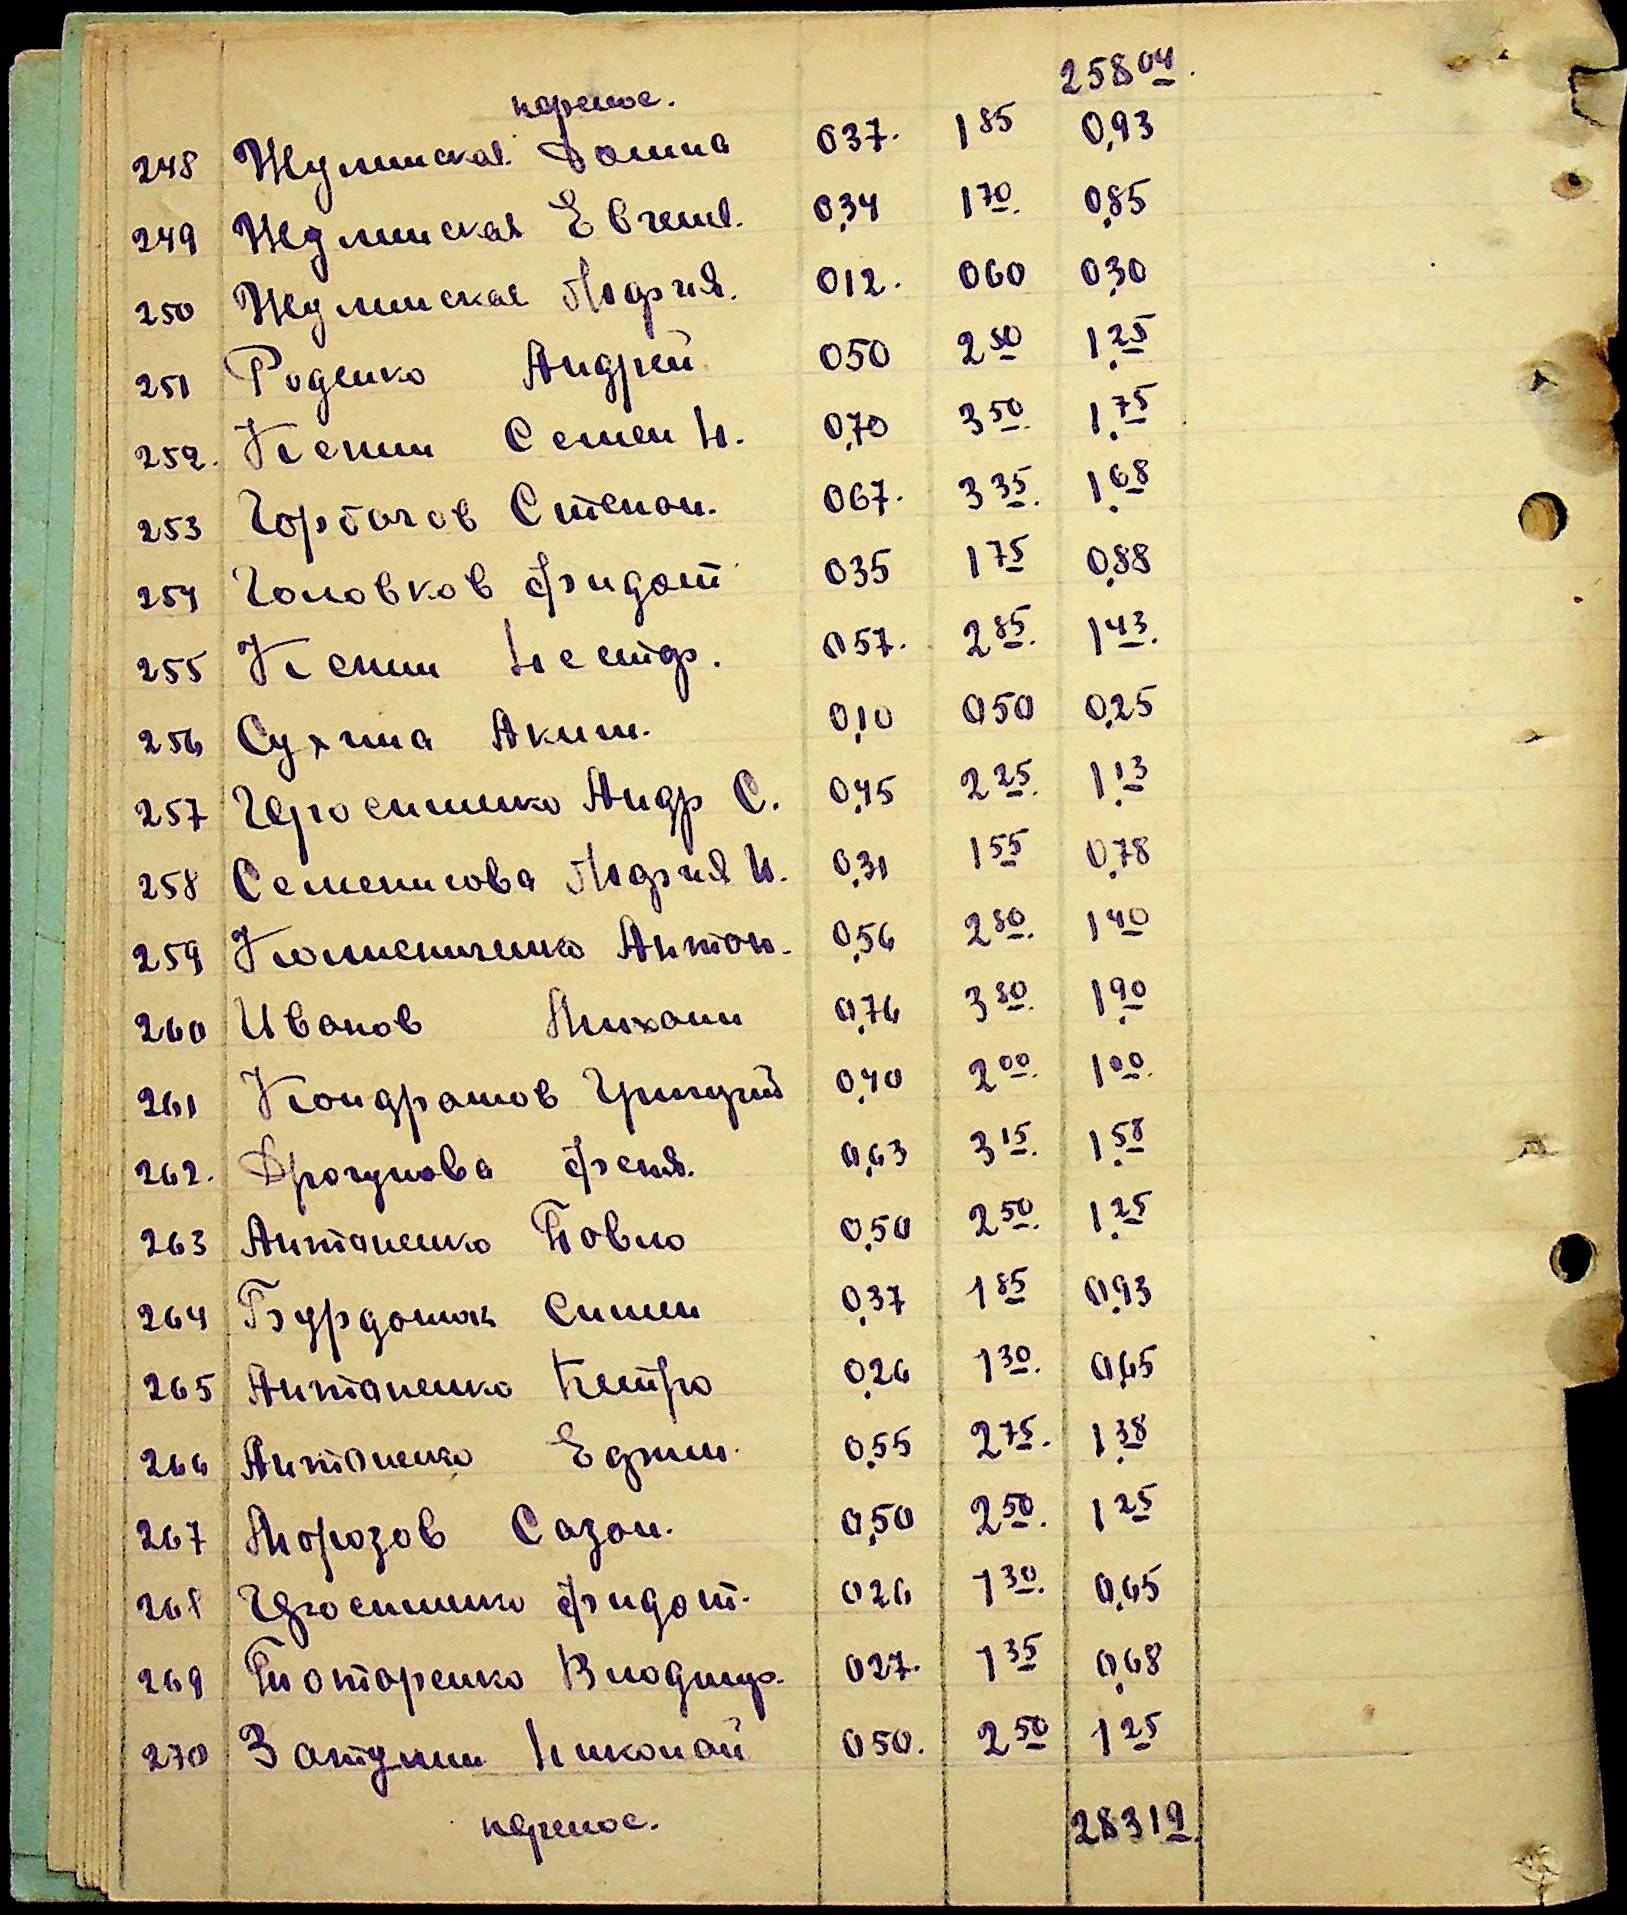 перенос. 258 04.
248 Жулинская Домна 037. 1 85 0,93
249 Жулинская Евгени. 0,34 1 70. 0,85
250 Жулинская Мария. 012. 060 0,30
251 Роденко Андрей 050 2 50 1,25
252. Ксенин Семен Н. 0,70 3 50. 1,75
253 Горбачов Степан. 067. 3 35. 1,68
254 Головков Федот 035 1 75 0,88
255 Ксенин Нестор. 057. 2 85. 1 43.
256 Сухина Аким. 0,10 050 0,25
257 Герасименко Андр С. 0,45 2 25. 1,13
258 Семенцова Мария И. 0,31 1 55 0,78
259 Коломейченко Антон. 0,56 2 80. 1 40
260 Иванов Михаил 0,76 3 80. 1,90
261 Кондрашов Григорий 0,40 2 00. 1 00.
262. Драгунова Феня. 0,63 3 15. 1,58
263 Антоненко Павло 0,50 2 50. 1,25
264 Бурдашок Симен 0,37 1 85 0,93
265 Антоненко Петро 0,26 1 30. 0,65
266 Антоненко Ефим. 0,55 2 75. 1,38
267 Морозов Сазон. 0,50 2 50. 1 25
268 Герасименко Федот. 026 1 30. 0,65
269 Потаренко Владимр. 027. 1 35 0,68
270 Затулин Николай 050. 2 50 1 25
перенос. 283 19.